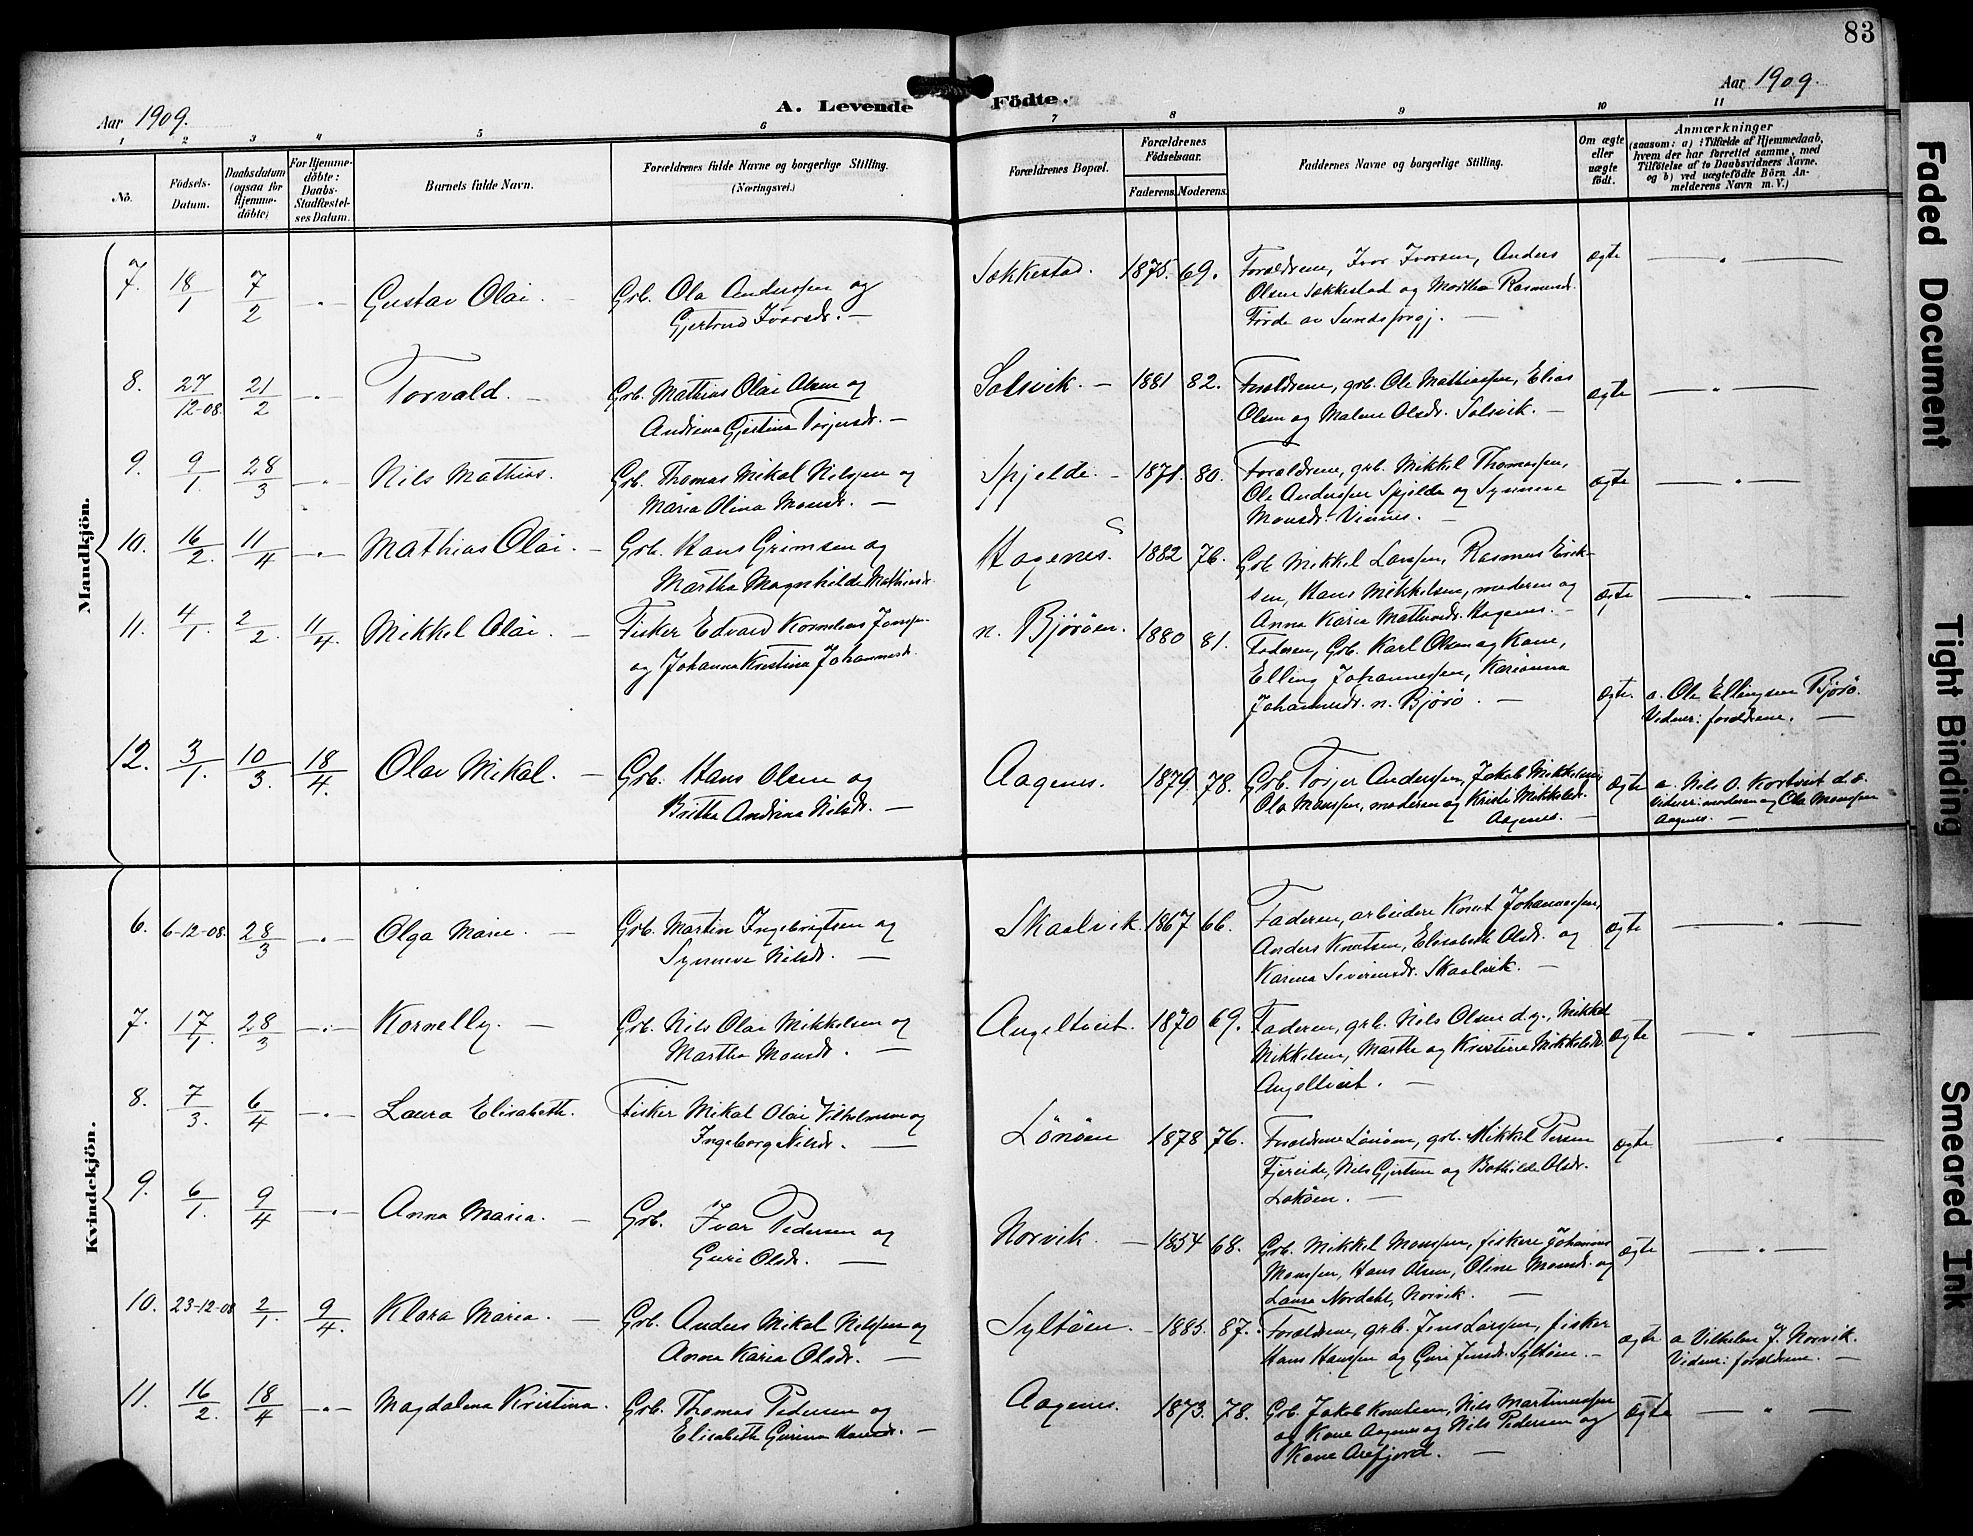 83
Aar 1909.
A. Levende Födte.
Aar 1909.
1 2 3 4 5 6 7 8 9 10 11
No.
Födsels-Datum.
Daabsdatum (ogsaa for Hjemme-döbte)
For Hjemme-döbte: Daabs-Stadfæstel-ses Datum.
Barnets fulde Navn.
Forældrenes fulde Navne og borgerlige Stilling.
(Næringsvei.)
Forældrenes Bopæl.
Forældrenes Födselsaar.
Faderens. Moderens.
Faddernes Navne og borgerlige Stilling.
Om ægte eller uægte födt.
Anmærkninger
(saasom: a) i Tilfælde af Hjemmedaab,
hvem der har forrettet samme, med
Tilföielse af to Daabsvidners Navne.
og b) ved uægtefödte Börn An-
melderens Navn m. V.)
Mandkjön.
7. 18/1 7/2 -"- Gustav Olai. Grb. Ola Anderssen og
Gjertrud Ivarsdr. —
Søkkestad. 1875. 69. Forældrene, Ivar Ivarsen, Anders
Olsen Søkkestad og Martha Rasmusdr.
Førde av Sundsprgj. —
ægte — " —
8. 27/12-08 21/2 -"- Torvald. — Grb. Mathias Olai Olsen og
Andrina Gjertina Torjersdr. —
Solsvik. — 1881 82. Forældrene, grb. Ole Mathiassen, Elias
Olsen og Malene Olsdr. Solsvik. —
ægte — " —
9. 9/1. 28/3 -"- Nils Mathias. Grb. Thomas Mikal Nilssen og
Maria Olina Monsdr. —
Spjelde. — 1871. 80. Forældrene, grb. Mikkel Thomassen,
Ole Anderssen Spjelde og Synneve
Monsdr. Vinnes. —
ægte — " —
10. 16/2. 11/4 -"- Mathias Olai. — Grb. Hans Grimsen og
Martha Magnhilde Mathiasdr.
Hagenes. 1882 76. Grb. Mikkel Larssen, Rasmus Erik-
sen, Hans Mikkelsen, moderen og
Anna Karie Hagenes. —
ægte — " —
11. 4/1. 2/2. 11/4. Mikkel Olai. — Fisker Edvard Kornelius Jenssen
og Johanna Kristina Johannesdr.
n. Bjørøen. 1880 81. Faderen, Grb. Karl Olsen og Kone,
Elling Johannessen, Karianna
Johannesdr. n. Bjørø. —
ægte. a. Ole Ellingsen Bjørø.
Vidner: forældrene. —
12. 3/1. 10/3. 18/4. Olav Mikal. — Grb. Hans Olsen og
Britha Andrina Nilsdr. —
Aagenes. 1879. 78. Grb. Torjer Anderssen, Jakob Mikkelsen,
Ola Monssen, moderen og Kristi Mikkelsdr.
Aagenes. —
ægte a. Nils O. Kortveit d.e.
Vidner: moderen og Ola Monssen
Aagenes. —
Kvindekjön.
6. 6-12-08. 28/3 -"- Olga Marie. — Grb. Martin Ingebrigtsen og
Synneve Nilsdr. —
Skaalvik. 1867 66. Faderen, arbeidere Knut Johannessen,
Anders Knutsen, Elisabeth Olsdr. og
Karina Severinsdr. Skaalvik. —
ægte — " —
7. 17/1. 28/3 -"- Kornelly. — Grb. Nils Olai Mikkelsen og
Martha Monsdr. —
Angeltveit. 1870 69. Faderen, grb. Nils Olsen d.y., Mikkel
Mikkelsen, Marthe og Kristine Mikkelsdr.
Angeltveit. —
ægte — " —
8. 7/3. 6/4 -"- Laura Elisabeth. Fisker Mikal Olai Vilhelmsen og
Ingeborg Nilsdr. —
Lønøen 1878 76. Forældrene Lønøen, grb. Mikkel Persen
Fjereide, Nils Gjertsen og Bothilde Olsdr.
Lokøen. —
ægte "
9. 6/1. 9/4 -"- Anna Maria. — Grb. Ivar Pedersen og
Guri Olsdr. —
Norvik. — 1854 68. Grb. Mikkel Monssen, fiskere Johannes
Monssen, Hans Olsen, Oline Monsdr. og
Laura Nordahl, Norvik. —
ægte — " —
10. 23-12-08 2/1. 9/4. Klara Maria. — Grb. Anders Mikal Nilssen og
Anna Karia Olsdr. —
Syltøen. — 1885. 87. Forældrene, grb. Jens Larssen, fisker
Hans Hanssen og Guri Jensdr. Syltøen. —
ægte a. Vilhelm J. Norvik.
Vidner: forældrene. —
11. 16/2. 18/4 -"- Magdalena Kristina. Grb. Thomas Pedersen og
Elisabeth Gurina Hansdr. —
Aagenes. 1873. 78. Grb. Jakob Knutsen, Nils Martinussen
og Kone Aagenes og Nils Pedersen og
Kone Arefjord. —
ægte — " —
Faded Document
Tight Binding
Smeared Ink